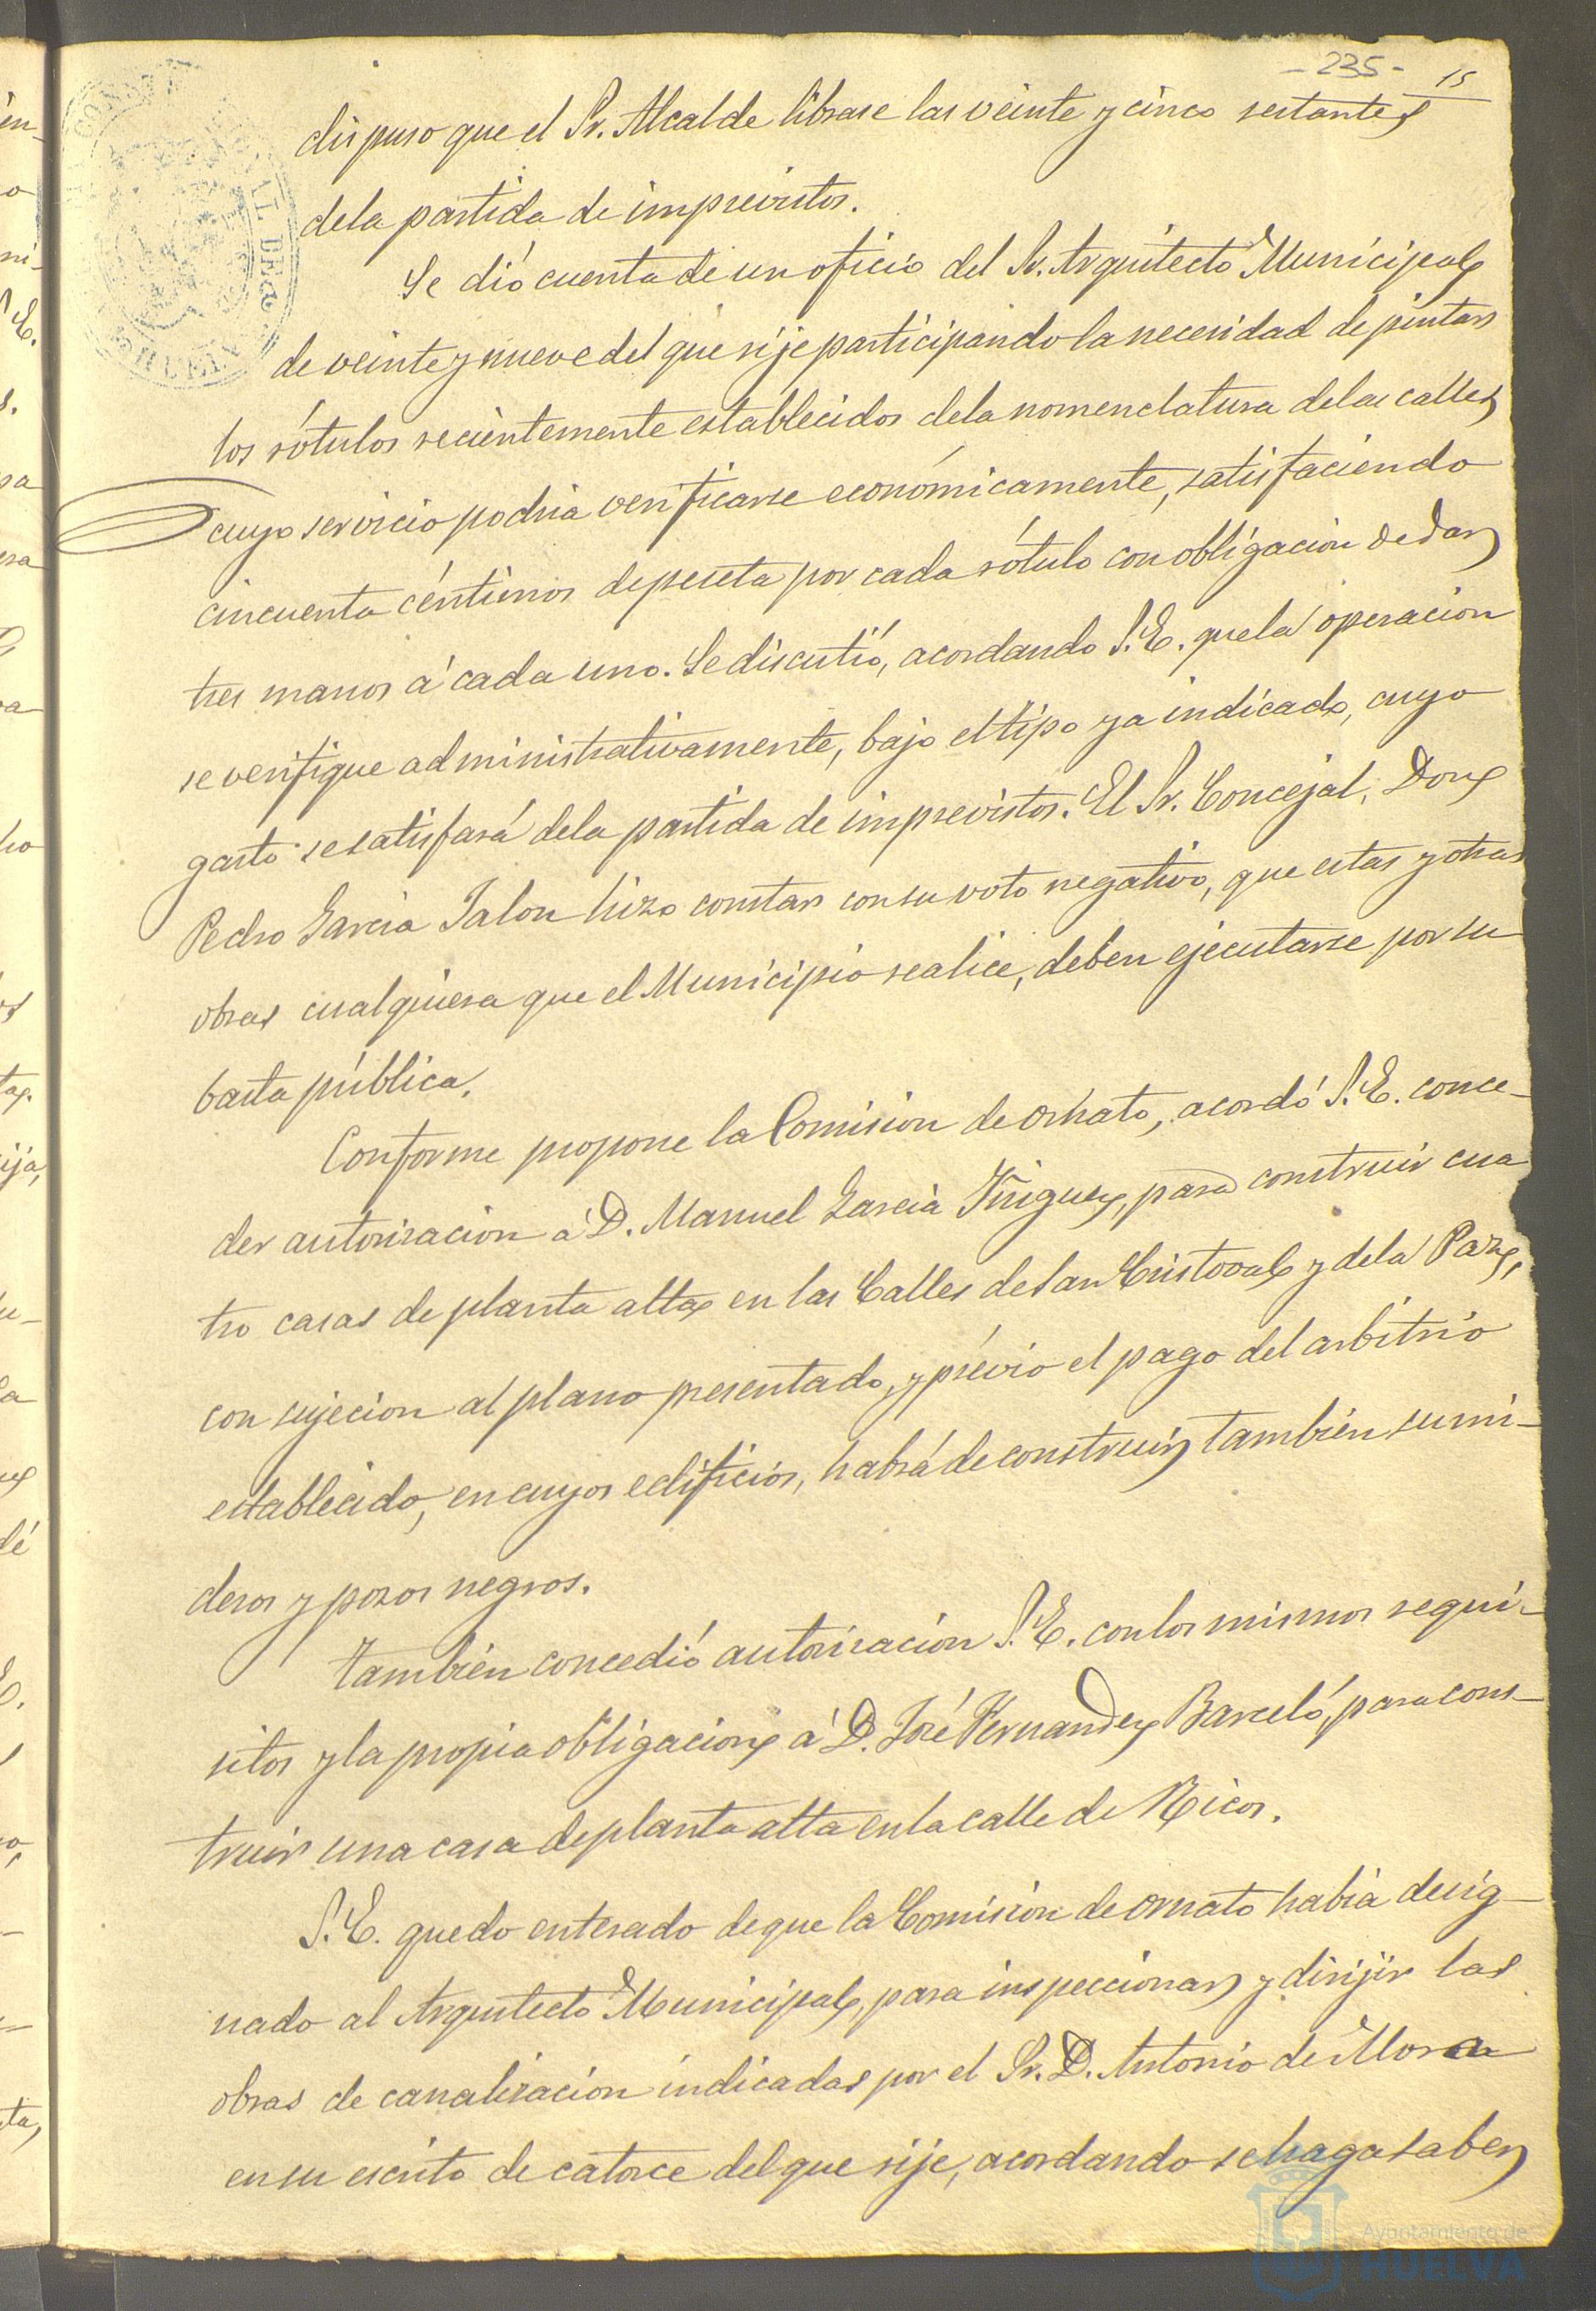 - 235 -
15
dispuso que el Sr. Alcalde librase las veinte y cinco restantes
dela partida de imprevistos.
Se dió cuenta de un oficio del Sr. Arquitecto Municipal
de veinte y nueve del que rije participando la necesidad de pintar
los rótulos recientemente establecidos dela nomenclatura delas calles
cuyo servicio podria verificarse económicamente, satisfaciendo
cincuenta céntimos de peseta por cada rótulo con obligacion de dar
tres manos á cada uno. Se discutió, acordando S.E. que la operacion
se verifique administrativamente, bajo el tipo ya indicado, cuyo
gasto se satisfará dela partida de imprevistos. El Sr. Concejal, Don
Pedro Garcia Jalon hizo constar con su voto negativo, que estas y otras
obras cualquiera que el Municipio realice, deben ejecutarse por su
basta pública.
Conforme propone la Comision de ornato, acordó S.E. conce-
der autorizacion á D. Manuel Garcia Iñiguez, para construir cua
tro casas de planta alta en las Calles de San Cristoval y dela Paz,
con sujecion al plano presentado, y prévio el pago del arbitrio
establecido, en cuyos edificios, habrá de construir tambien sumi-
deros y pozos negros.
Tambien concedió autorizacion S.E. con los mismos requi-
sitos y la propia obligacion á D. José Fernandez Barceló, para cons-
truir una casa de planta alta en la calle de Ricos.
S.E. quedo enterado de que la Comision de ornato habia desig-
nado al Arquitecto Municipal, para inspeccionar y dirijir las
obras de canalizacion indicadas por el Sr. D. Antonio de Mora
en su escrito de catorce del que rije, acordando se haga saber
Ayuntamiento de
HUELVA